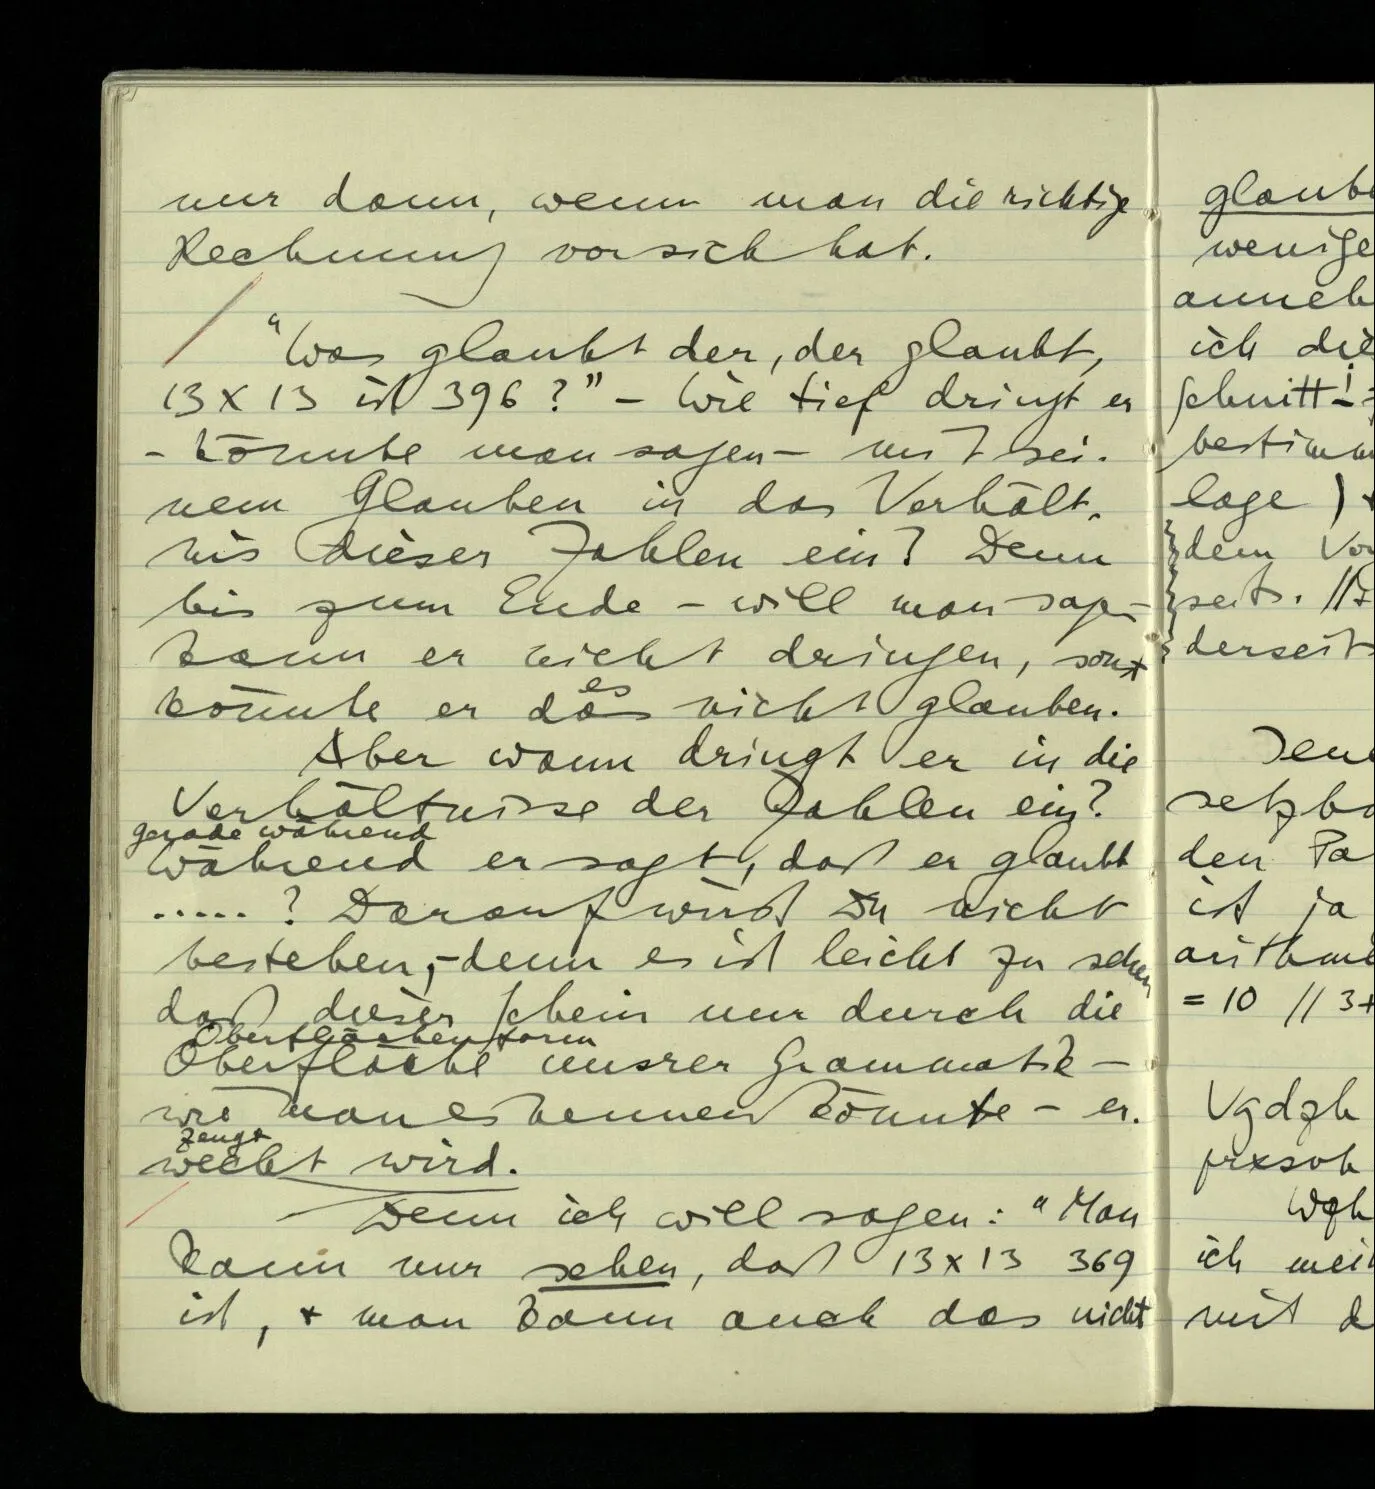 nur dann, wenn man die richtige
Rechnung vor sich hat.
"Was glaubt der, der glaubt,
13 x 13 ist 396?" – Wie tief dringt er
– könnte man sagen – mit sei-
nem Glauben in das Verhält-
nis dieser Zahlen ein? Denn
bis zum Ende – will man sagen –
kann er nicht dringen, sonst
es
könnte er das nicht glauben.
Aber wann dringt er in die
Verhältnisse der Zahlen ein?
gerade während
Während er sagt, daß er glaubt
.....? Darauf wirst Du nicht
bestehen, – denn es ist leicht zu sehen
daß dieser Schein nur durch die
Oberflächenform
Oberfläche unsrer Grammatik –
wie man es nennen könnte – er-
zeugt
weckt wird.
Denn ich will sagen: "Man
kann nur sehen, daß 13 x 13 369
ist, + man kann auch das nicht
glaube
wenige
anneh
ich die
schnitt!
bestimm
lage)
dem Vor
seits. //
derseits
Jene
setzba
den Pa
ist ja
arithme
= 10 // 3+
Vgdzh
prxsoh
Wqh
ich mein
mit d